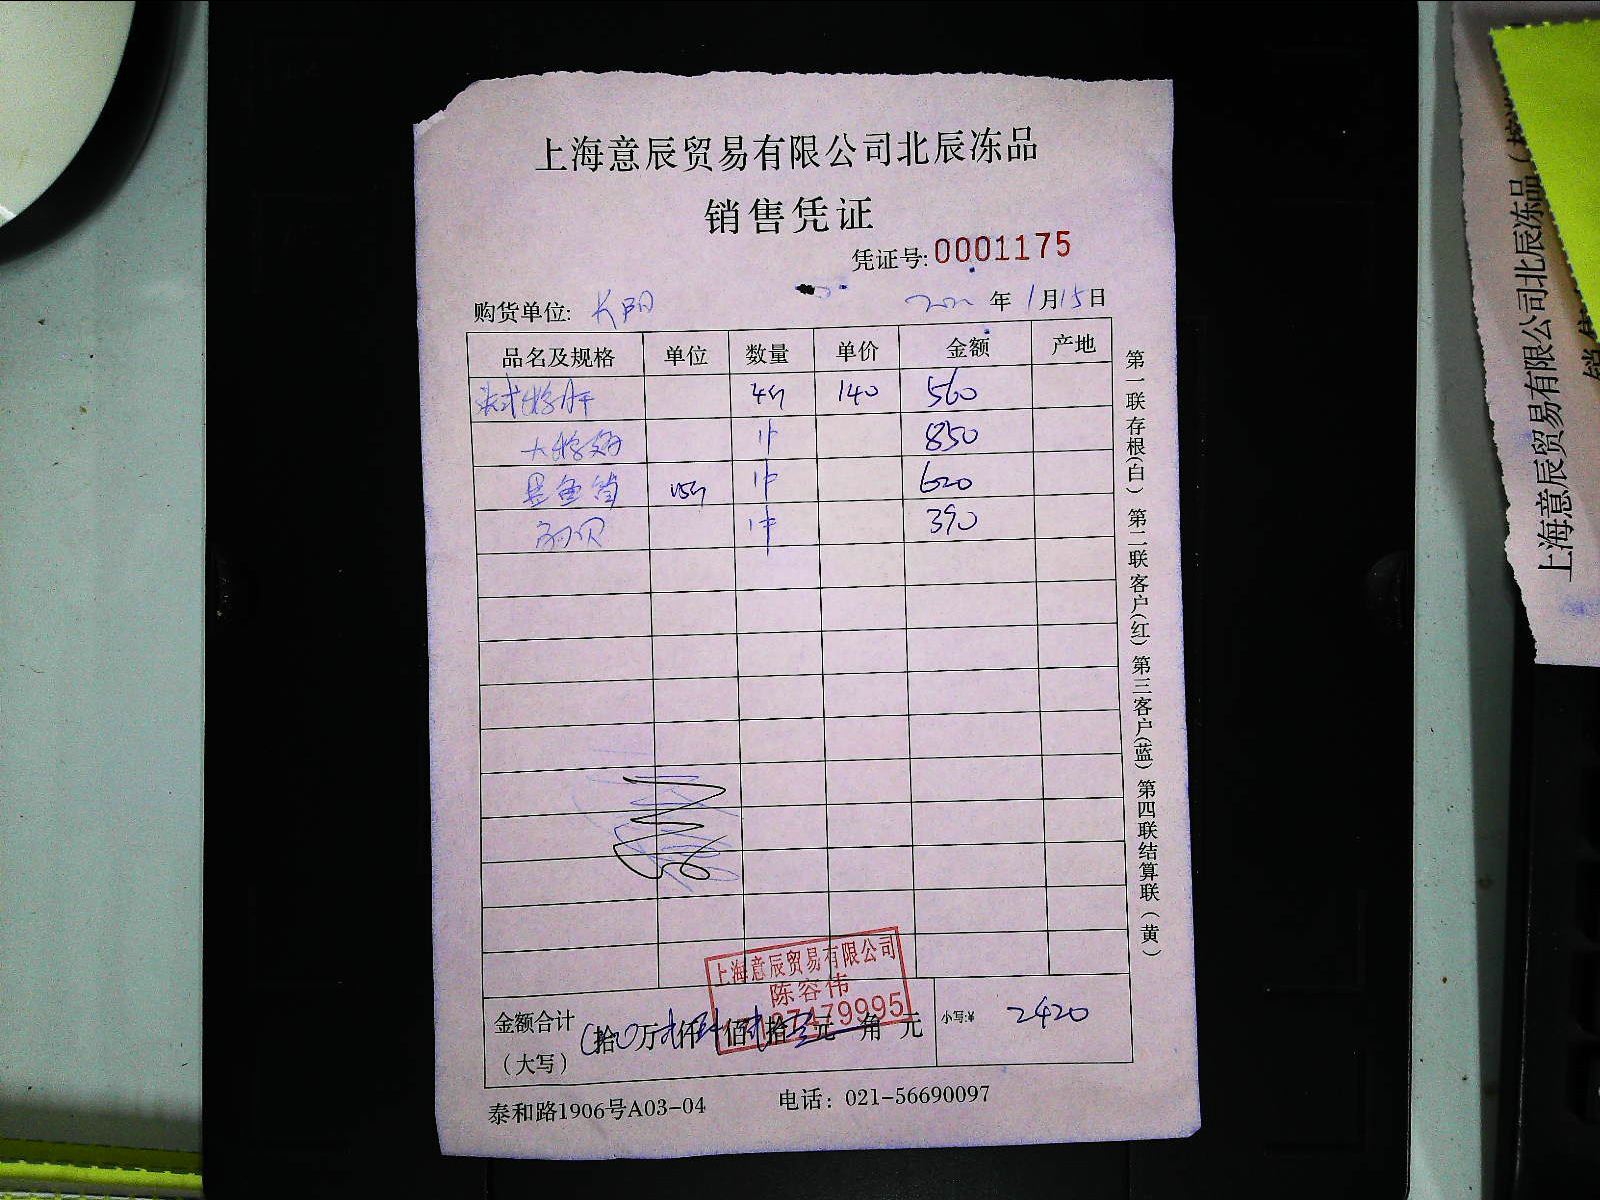 上海意辰贸易有限公司北辰冻品
销售凭证
凭证号:0001175
购货单位: 长阳 年 1月15日
品名及规格 单位 数量 单价 金额 产地
140 560
大 1件 850
鱼 1件 620
贝 1件 390
第一联存根(白) 第二联客户(红) 第三客户(蓝) 第四联结算联(黄)
上海意辰贸易有限公司
陈容伟
金额合计
(大写)
拾万仟佰拾元角元
小写:¥ 2420
泰和路1906号A03-04 电话: 021-56690097
上海意辰贸易有限公司北辰冻品